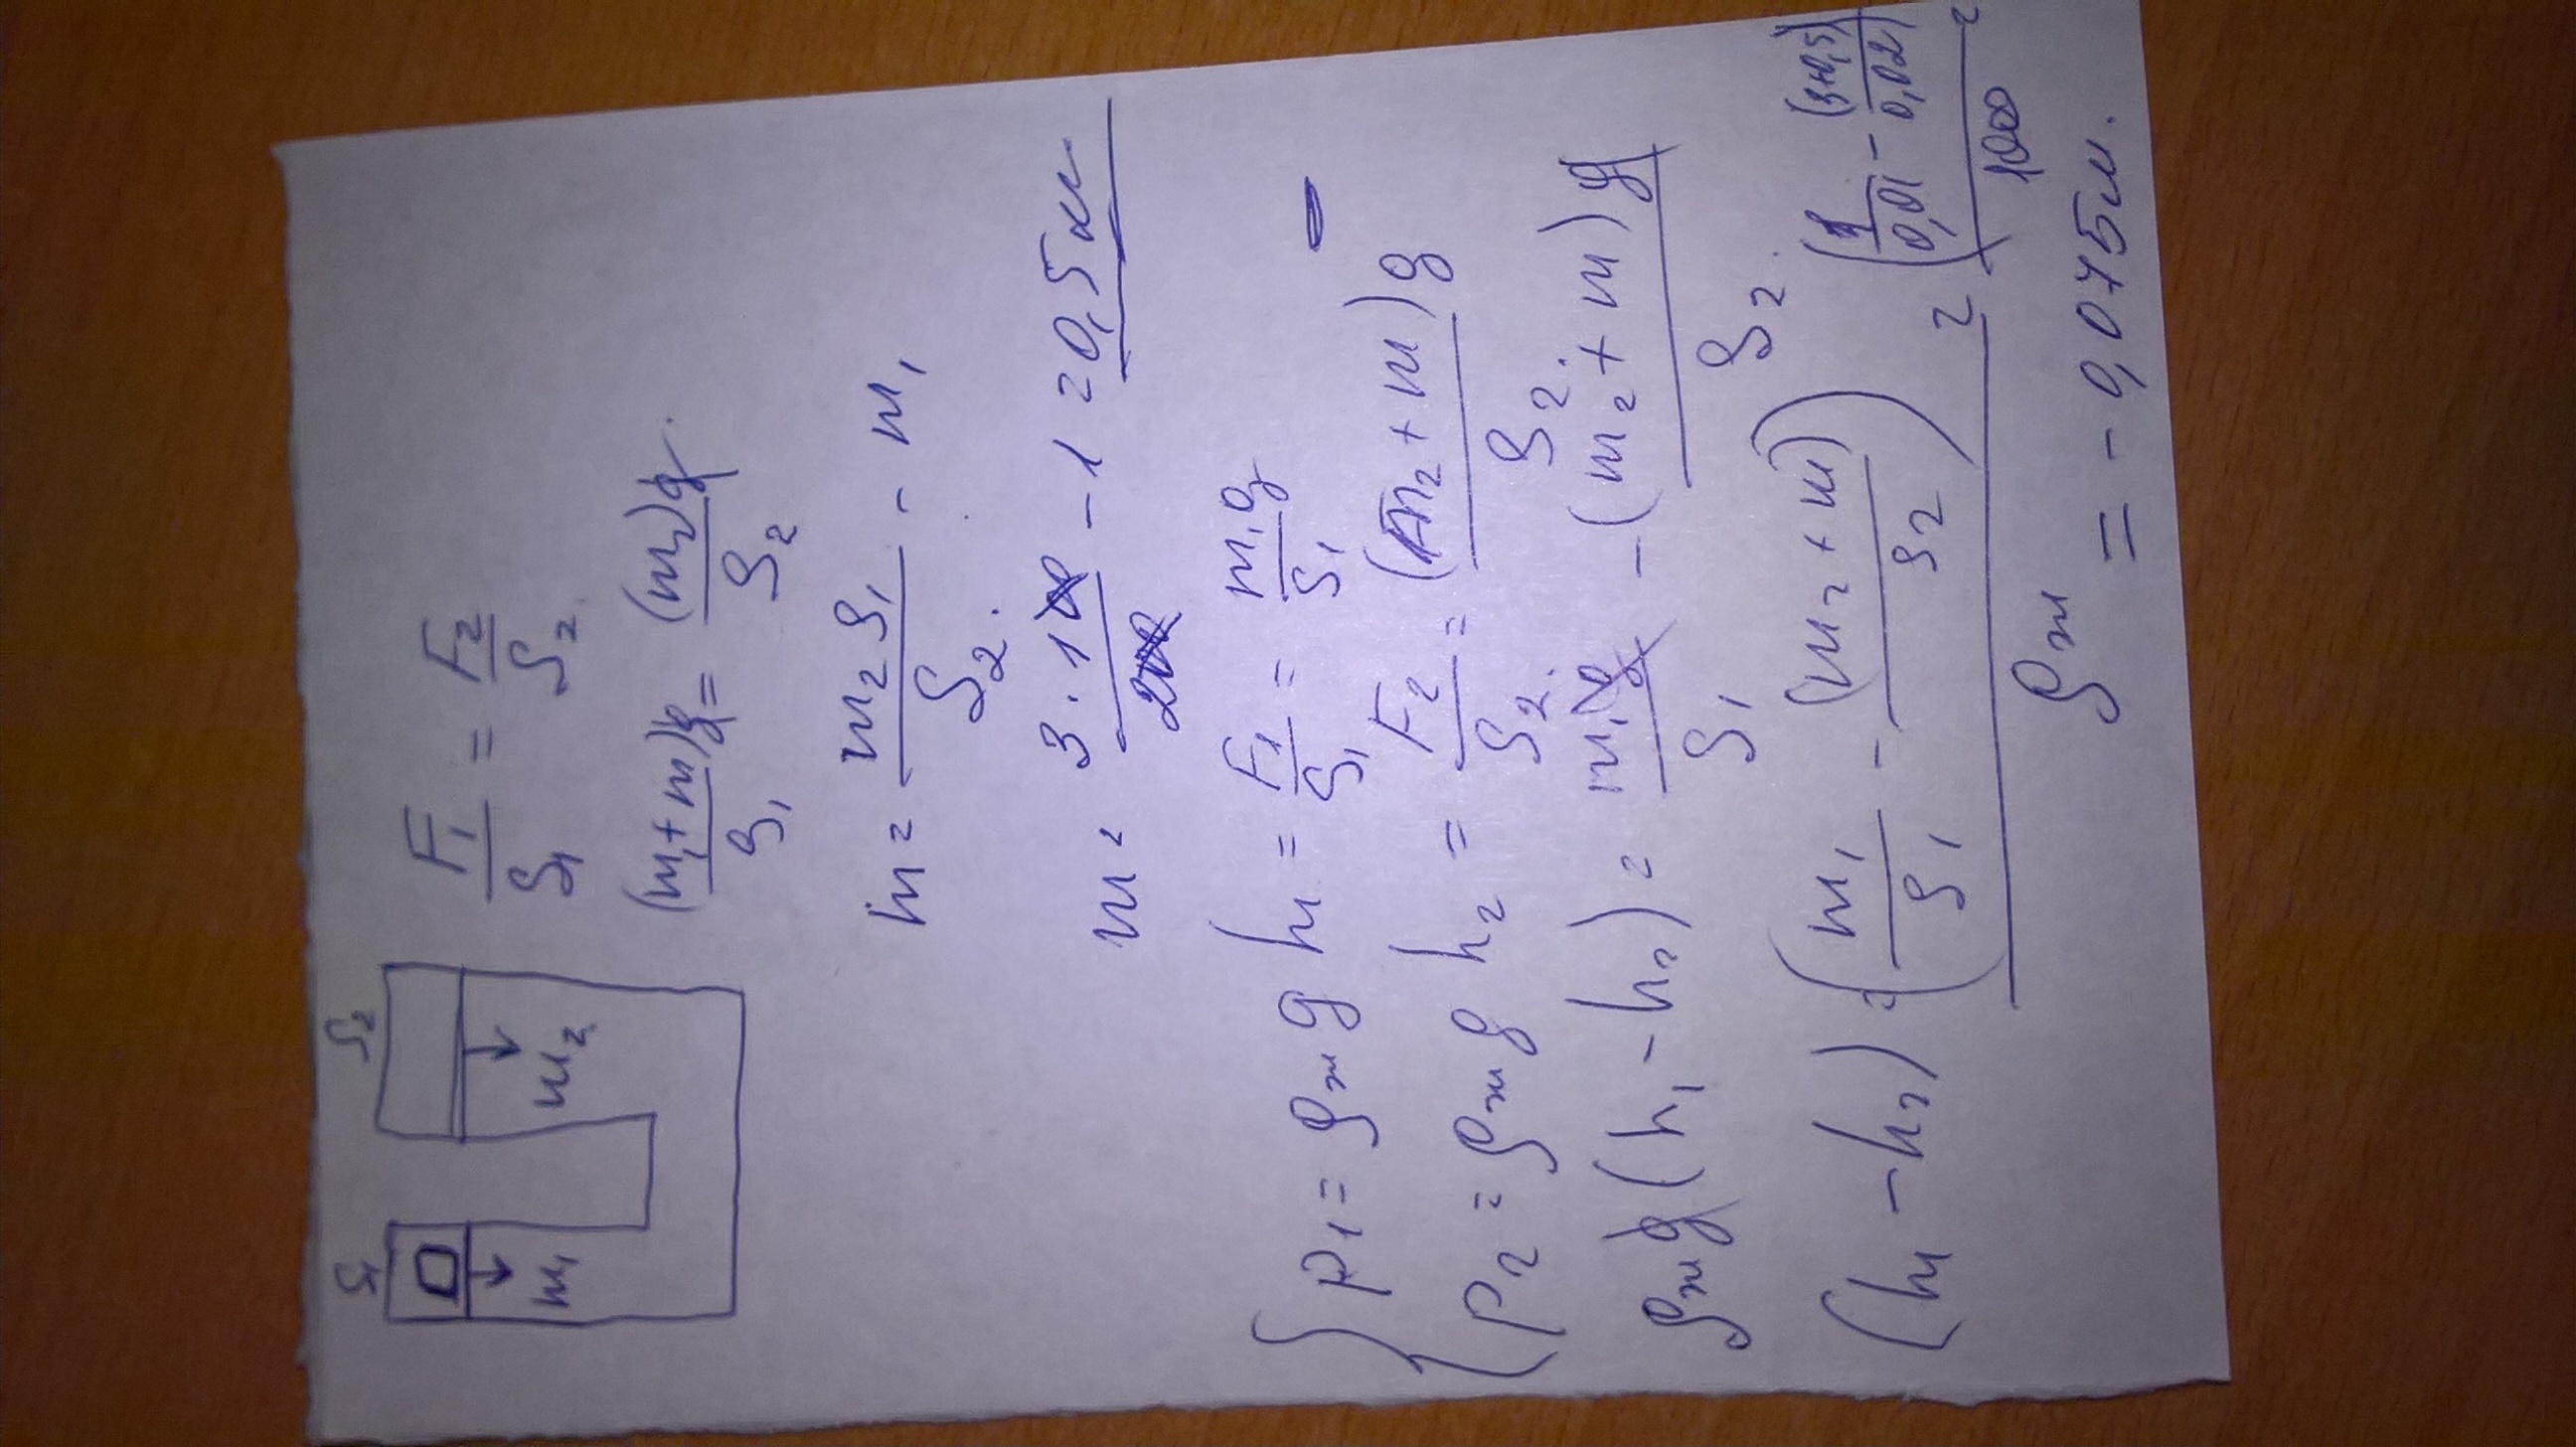 S₁ S₂
m₁ m₂
F₁/S₁ = F₂/S₂
(m₁+m)g/S₁ = (m₂)g/S₂
m = m₂S₁/S₂ - m₁
m = 3·100/200 - 1 = 0,5кг
P₁ = ρжgh₁ = F₁/S₁ = m₁g/S₁
P₂ = ρжgh₂ = F₂/S₂ = (m₂+m)g/S₂
ρжg(h₁-h₂) = m₁g/S₁ - (m₂+m)g/S₂
(h₁-h₂) = (m₁/S₁ - (m₂+m)/S₂)/ρж = (1/0,01 - (3+0,5)/0,02)/1000 =
= -0,075м.